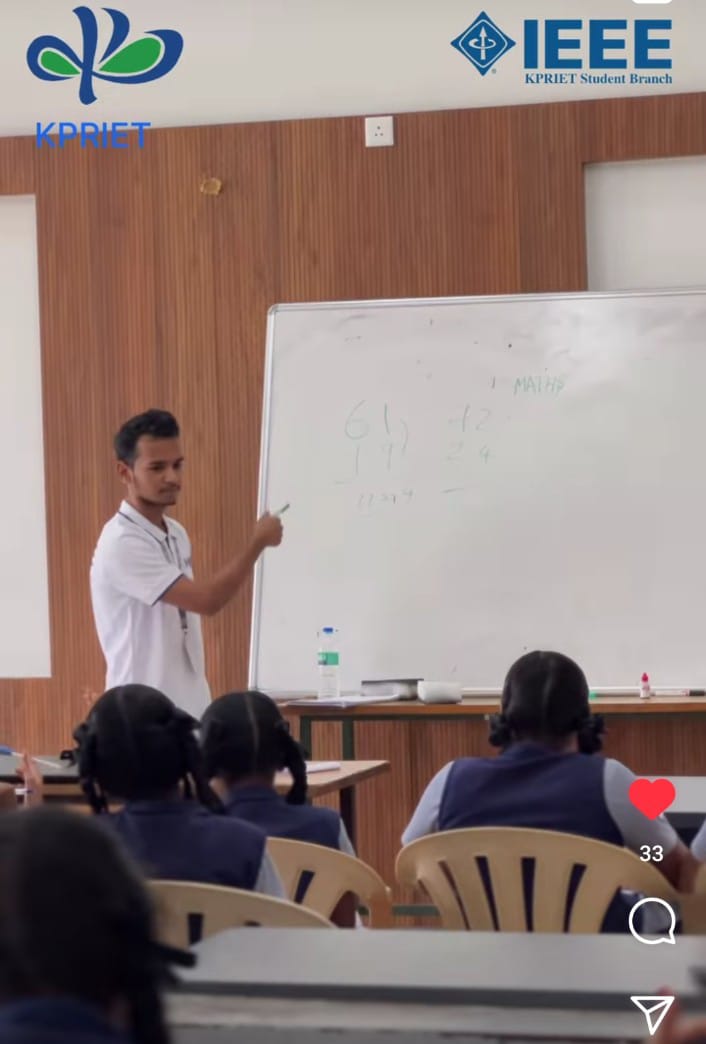 KPRIET
IEEE
KPRIET Student Branch
MATHS
61
19
42
24
33